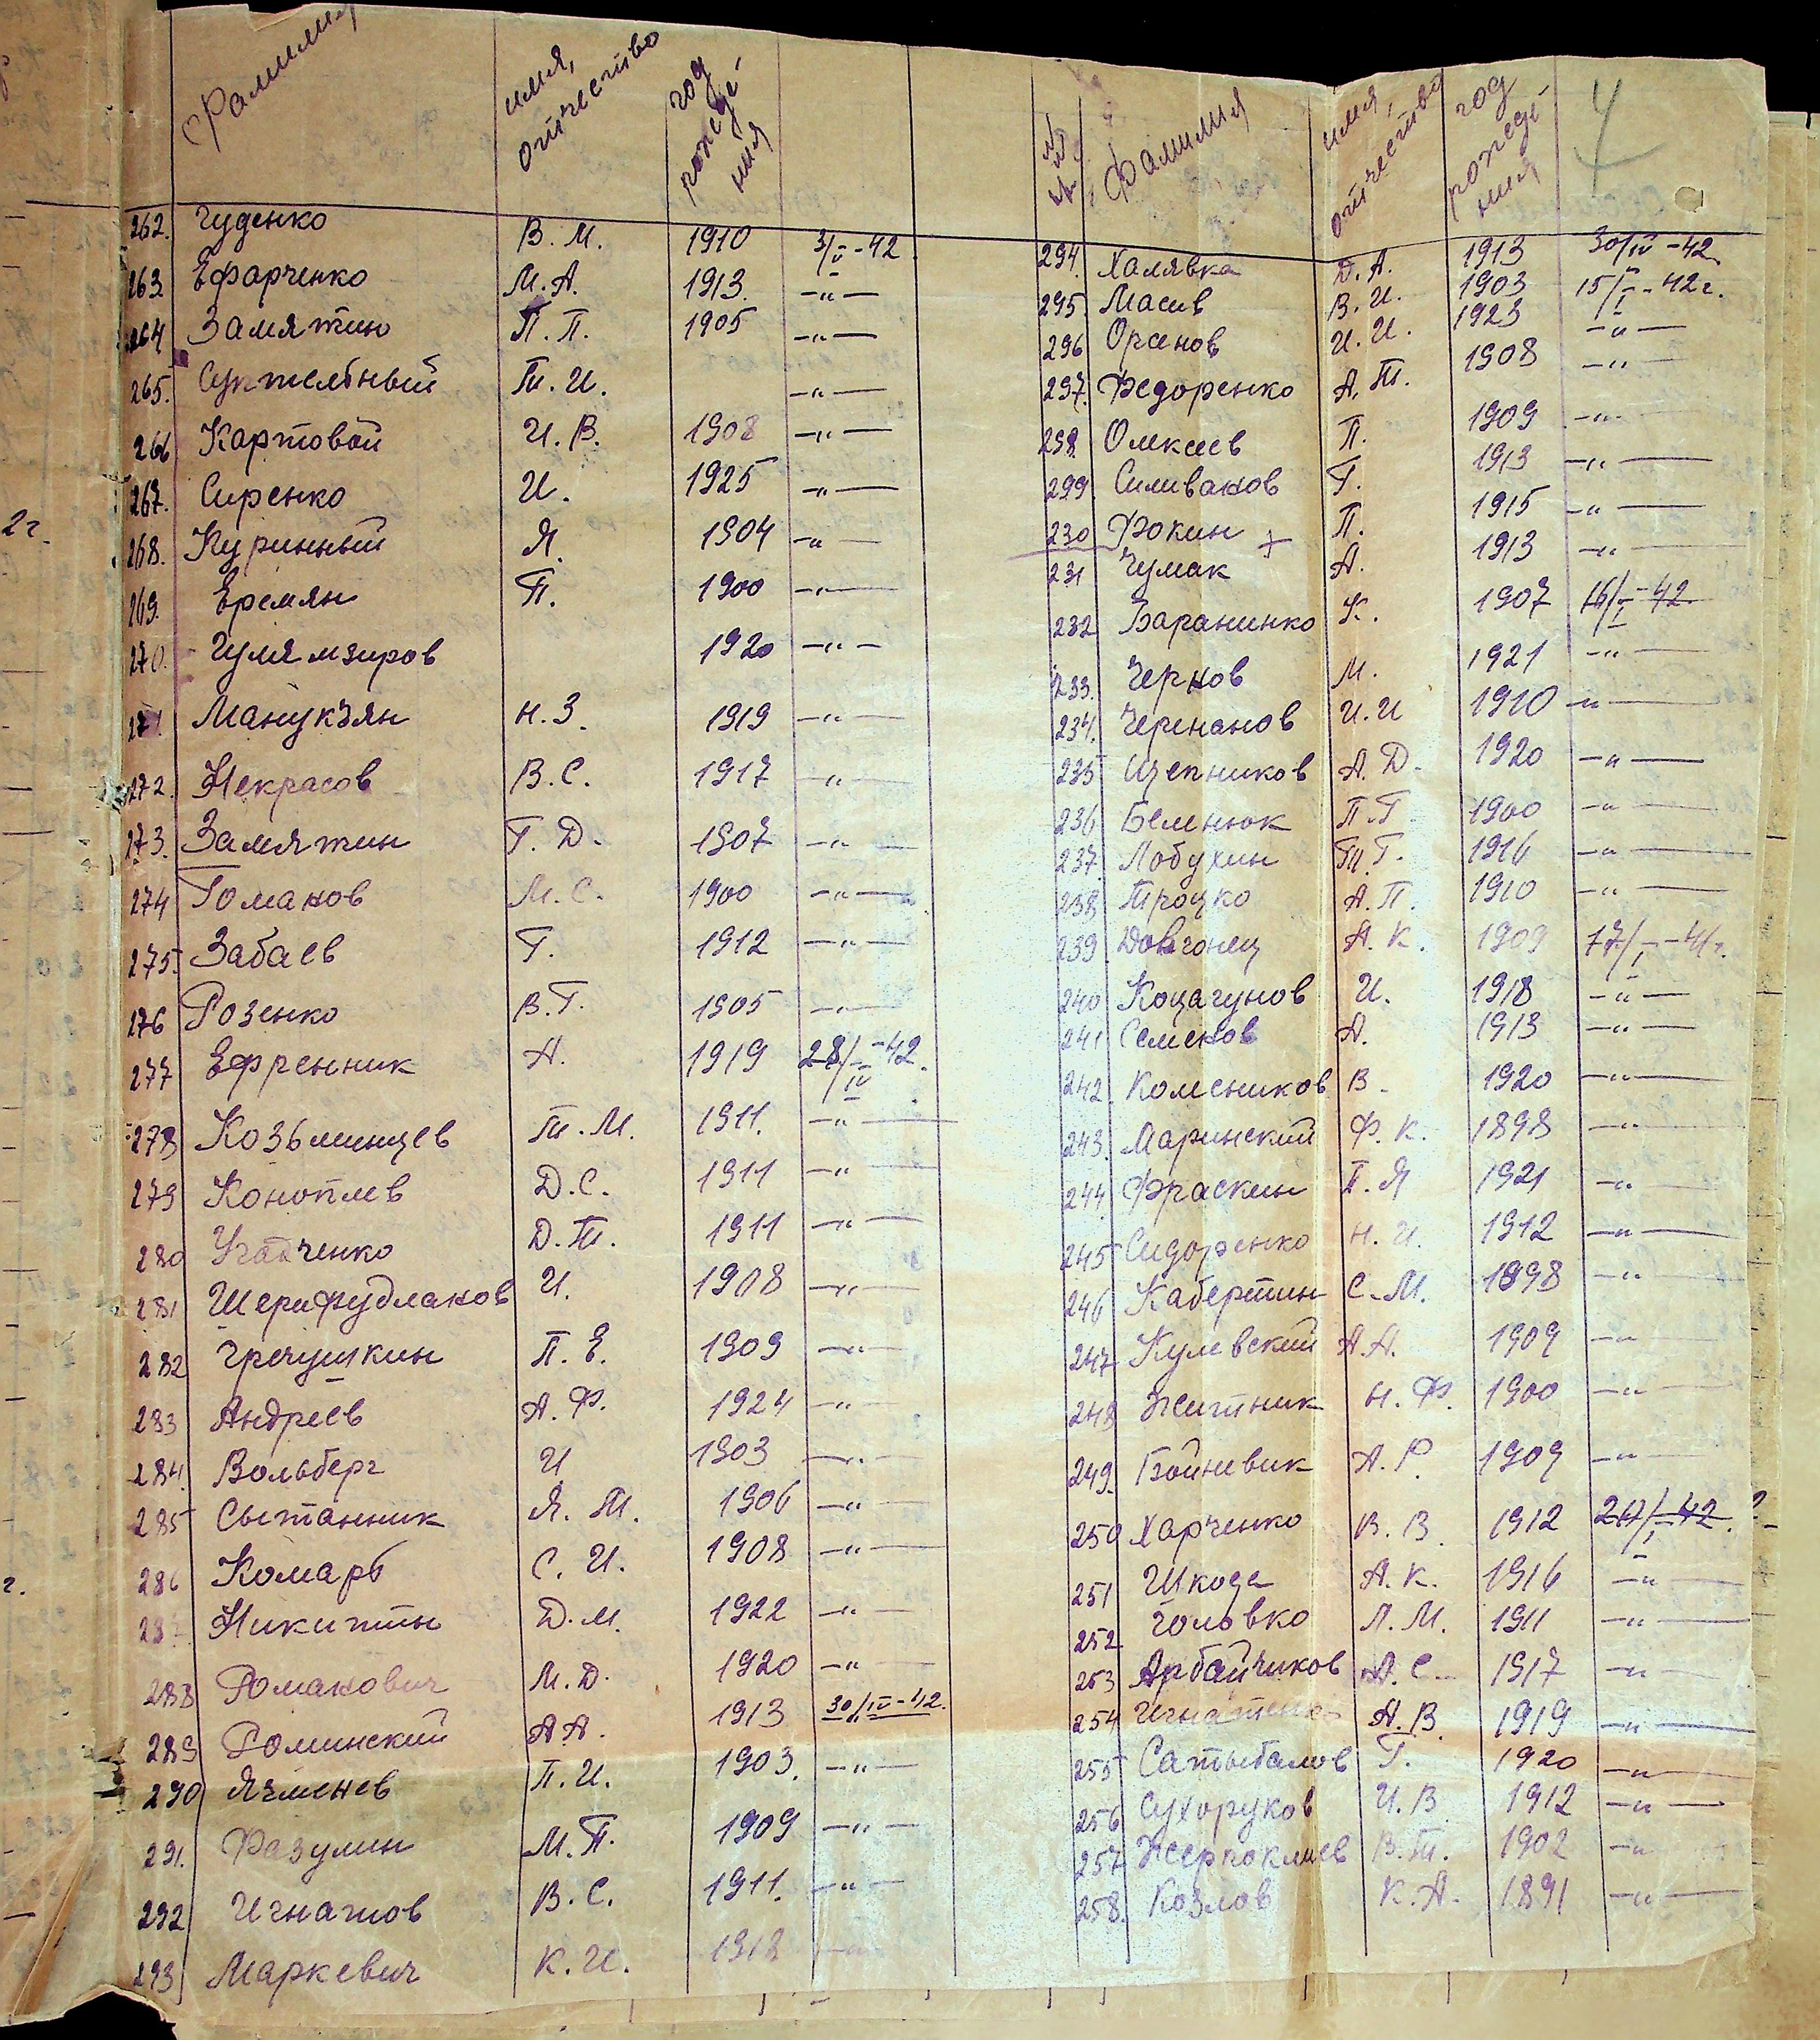 Фамилия имя, отчество год рождения
262. Чуденко В. М. 1910 3/V-42
263. Ефарченко М. А. 1913. -"-
264. Замятин П. П. 1905 -"-
265. Т. И. -"-
266 Картовой И. В. 1908 -"-
267. Сиренко И. 1925 -"-
268. Куринный Я. 1904 -"-
269. Еремян П. 1900 -"-
270. 1920 -"-
271. Манукэян Н. З. 1919 -"-
272. Некрасов В. С. 1917 -"-
273. Замятин Г. Д. 1907 -"-
274 Томаков М. С. 1900 -"-
275. Забаев Г. 1912 -"-
276 Розенко В. Г. 1905 -"-
277 Ефренник А. 1919 28/IV-42.
278 Козьминцев Т. М. 1911. -"-
279 Коноплев Д. С. 1911 -"-
280 Д. Т. 1911 -"-
281 Шерифудлаков И. 1908 -"-
282 Гречушкин П. Е. 1909 -"-
283 Андреев А. Ф. 1924 -"-
284. Вольберг И 1903 -"-
285 Сытанник Я. Т. 1906 -"-
286 Комарь С. И. 1908 -"-
287 Никитин Д. М. 1922 -"-
288 Романович М. Д. 1920 -"-
289 Роминский А. А. 1913 30/IV-42.
290 Ячменев П. И. 1903. -"-
291. Разумин М. П. 1909 -"-
292 Игнатов В. С. 1911. -"-
293 Маркевич К. И. 1912 -"-
4
Фамилия имя, отчество год рождения
294. Халявка Д. А. 1913 30/IV-42.
295. Масив В. И. 1903 15/I-42г.
296 Орсенов И. И. 1923 -"-
297. Федоренко А. Т. 1908 -"-
298. Олексеев П. 1909 -"-
299 Силиваков Г. 1913 -"-
230 Фокин + П. 1915 -"-
231 Чумак А. 1913 -"-
232 Баранинко К. 1907 16/I-42
233. Чернов М. 1921 -"-
234. Черненов И. И 1910 -"-
235 Щепников А. Д. 1920 -"-
236 Беменюк П. Г 1900 -"-
237. Лобухин Т. Г. 1916 -"-
238 Троцко А. П. 1910 -"-
239. Довгонец А. К. 1909 17/I-41г.
240 Коцагунов И. 1918 -"-
241 Семенов А. 1913 -"-
242. Комсников В. 1920 -"-
243. Маринский Ф. К. 1898 -"-
244 Фраскин Г. Я 1921 -"-
245 Сидоренко Н. И. 1912 -"-
246 Кабертин С. М. 1898 -"-
247 Кулевский А. А. 1909 -"-
248 Житник Н. Ф. 1900 -"-
249. Бойневик А. Р. 1909 -"-
250 Харченко В. В. 1912
251 Шкода А. К. 1916 -"-
252 Головко Л. М. 1911 -"-
253 Арбайчиков А. С. 1917 -"-
254 А. В. 1919 -"-
255 Сатыбалов Г. 1920 -"-
256 Сухоруков И. В 1912 -"-
257 В. Т. 1902 -"-
258. Козлов К. А. 1891 -"-